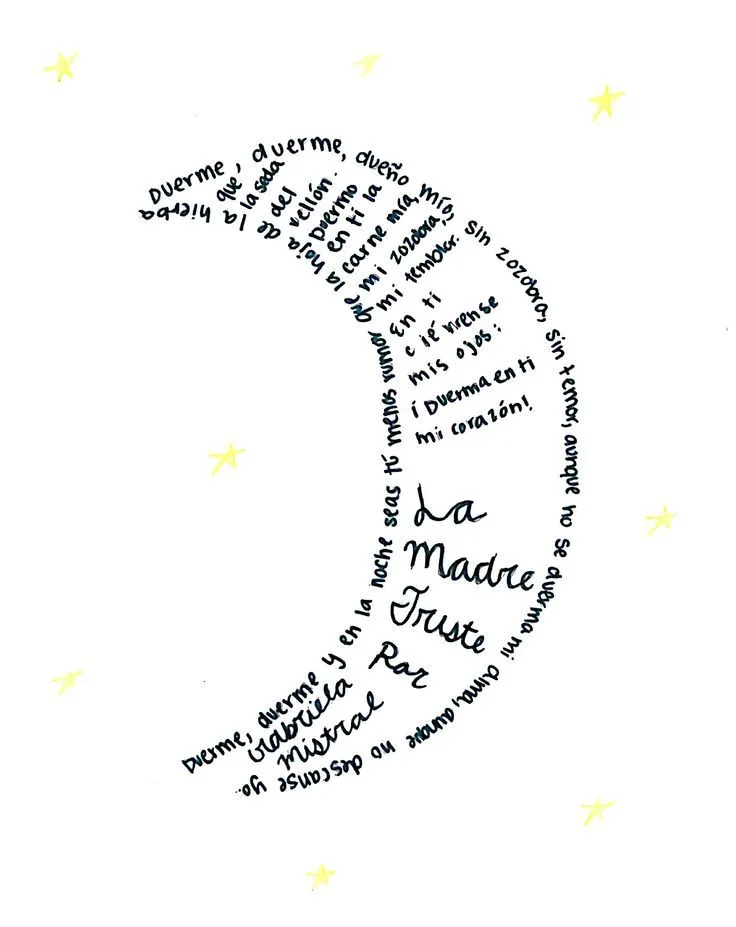 Duerme, duerme, dueño mío, sin zozobra, sin temor, aunque no se duerma mi alma, aunque no descanse yo..
Duerme, duerme y en la noche seas tú menos rumor que la hoja de la hierba
que
la seda
del
vellón.
Duermo
en ti la
carne mía,
mi zozobra,
mi temblor.
En ti
ciérrense
mis ojos:
¡Duerma en ti
mi corazón!
La
Madre
Triste
Por
Gabriela
Mistral